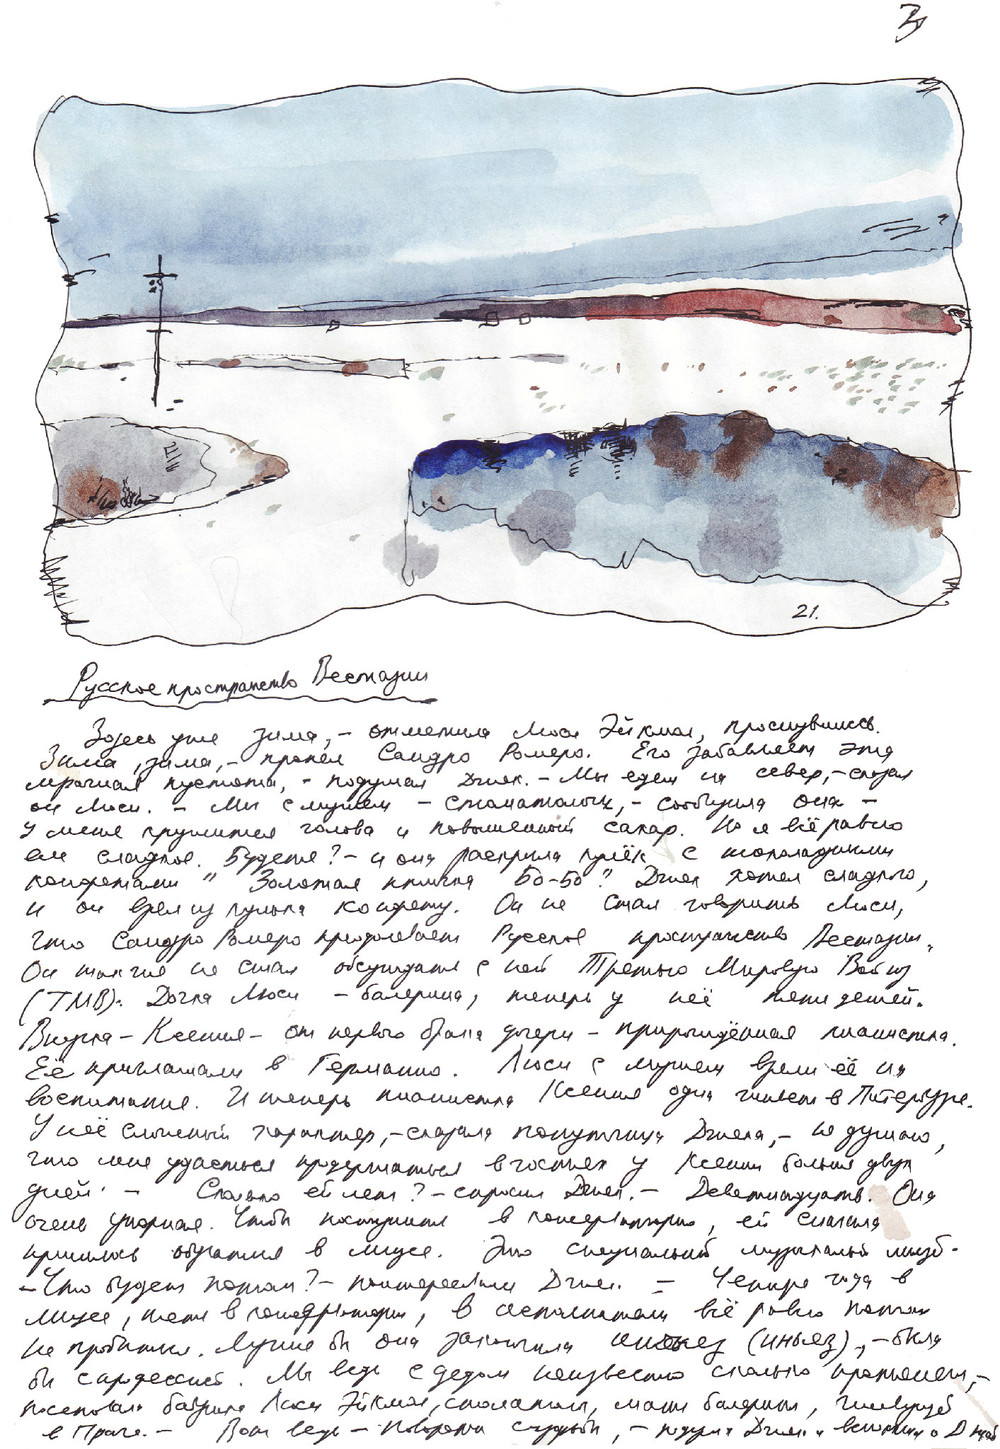 З
21.
Русское пространство Вестазии
Здесь уже зима, - отметила Люси Эйкмол, проснувшись.
Зима, зима, - пропел Сандро Ромеро. Его забавляет эта
мрачная пустота, - подумал Джек. - Мы едем на север, - сказал
он Люси. - Мы с мужем - стоматологи, - сообщила она -
у меня кружится голова и повышенный сахар. Но я всё равно
ем сладкое. Будете? - и она раскрыла кулёк с шоколадными
конфетами " Золотая птичка Бо-Бо". Джек хотел сладкого,
и он взял из кулька конфету. Он не стал говорить Люси,
что Сандро Ромеро преодолевает Русское пространство Вестазии.
Он также не стал обсуждать с ней Третью Мировую Войну
(ТМВ). Дочка Люси - балерина, теперь у неё пять детей.
Внучка - Ксения - от первого брака дочери - прирождённая пианистка.
Её приглашали в Германию. Люси с мужем взяли её на
воспитание. И теперь пианистка Ксения одна живёт в Питербурге.
У неё сложный характер, - сказала попутчица Джека, - не думаю,
что мне удасться продержаться в гостях у Ксении больше двух
дней. - Сколько ей лет? - спросил Джек. - Девятнадцать. Она
очень упорная. Чтобы поступить в консерваторию, ей сначала
пришлось обучаться в лицее. Это специальный музыкальный лицей.
- Что будет потом? - поинтересовался Джек. - Четыре года в
лицее, пять в консерватории, в исполнители всё равно потом
не пробиться. Лучше бы она закончила (иньяз), - была
бы с профессией. Мы ведь с дедом неизвестно сколько протянем, -
посетовала бабушка Люси Эйкмол, стоматолог, мать балерины, живущей
в Праге. - Вот ведь - повороты судьбы, - подумал Джек и вспомнил о